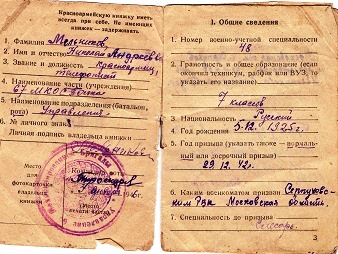 Красноармейскую книжку иметь
всегда при себе. Не имеющих
книжек — задерживать.
1. Фамилия Мельников
2. Имя и отчество Николай Андреевич
3. Звание и должность Красноармеец
телефонист
4. Наименование части (учреждения)
67
5. Наименование подразделения (батальон,
рота) Управления
6. № личного знака
Личная подпись владельца книжки
Место
для
фотокарточки
владельца
книжки
Командир
печати
I. Общие сведения
1. Номер военно-учетной специальности
48
2. Грамотность и общее образование (если
окончил техникум, рабфак или ВУЗ, то
указать его название)
7 классов
3. Национальность Русский
4. Год рождения 5.12.1925 г.
5. Год призыва (указать также — нормаль-
ный или досрочный призыв)
29.12.42 г.
6. Каким военкоматом призван Серпуховс-
ким РВК Московской области
7. Специальность до призыва
слесарь
3